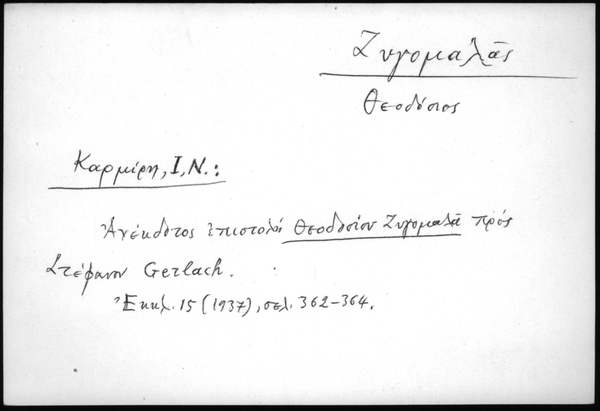 Ζυγομαλᾶς
Θεοδόσιος
Καρμίρη, Ι, Ν.:
Ἀνέκδοτος ἐπιστολὴ Θεοδοσίου Ζυγομαλᾶ πρὸς
Στέφανον Gerlach.
Ἐκκλ. 15 (1937), σελ. 362-364.